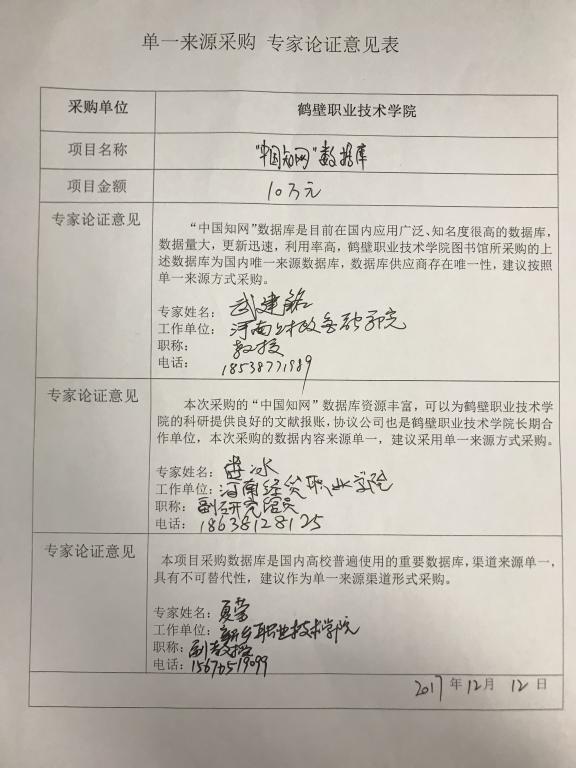 单一来源采购 专家论证意见表
采购单位 鹤壁职业技术学院
项目名称 “中国知网”数据库
项目金额 10万元
专家论证意见
“中国知网”数据库是目前在国内应用广泛、知名度很高的数据库，
数据量大，更新迅速，利用率高，鹤壁职业技术学院图书馆所采购的上
述数据库为国内唯一来源数据库，数据库供应商存在唯一性，建议按照
单一来源方式采购。
专家姓名：武建铭
工作单位：河南财政金融学院
职称：教授
电话：18538771989
专家论证意见
本次采购的“中国知网”数据库资源丰富，可以为鹤壁职业技术学
院的科研提供良好的文献报账，协议公司也是鹤壁职业技术学院长期合
作单位，本次采购的数据内容来源单一，建议采用单一来源方式采购。
专家姓名：冰
工作单位：河南经贸职业学院
职称：副研究馆员
电话：18638128125
专家论证意见
本项目采购数据库是国内高校普遍使用的重要数据库，渠道来源单一，
具有不可替代性，建议作为单一来源渠道形式采购。
专家姓名：夏荣
工作单位：新乡职业技术学院
职称：副教授
电话：15670519099
2017年12月12日